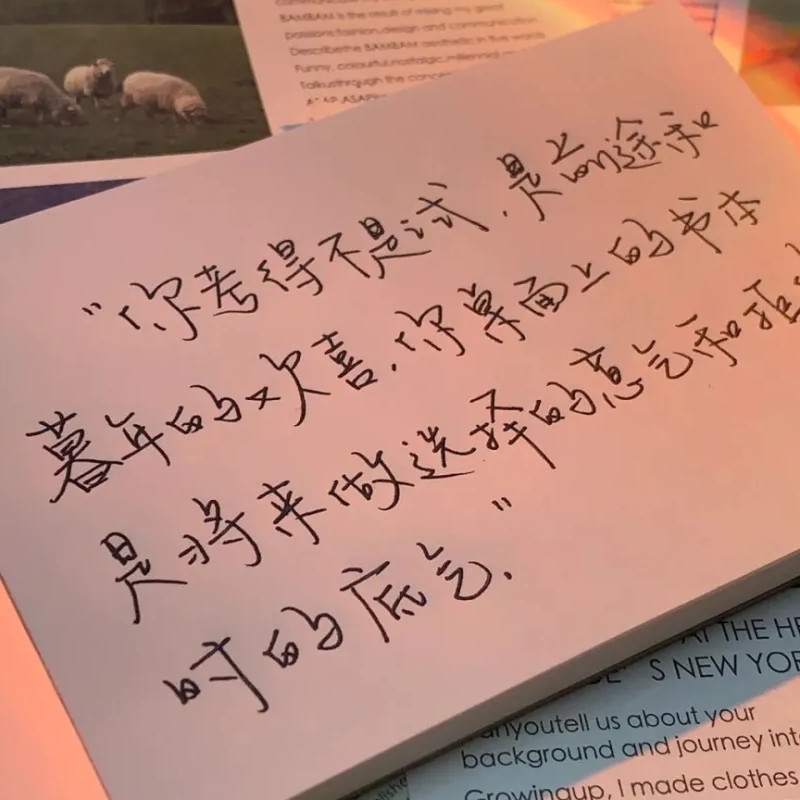 BAMBAM is the result of mixing my great
passions:fashion,design and communication
Describethe BAMBAM aesthetic in the words
Funny, colourful,nostalgic,millennial
Talkusthrough the
“你考得不是试.是前途和
暮年的欢喜.你桌面上的书本
是将来做选择的意气和拒
时的底气.”
THE
S NEW
tell us about your
background and journey
Growingup, I made clothes